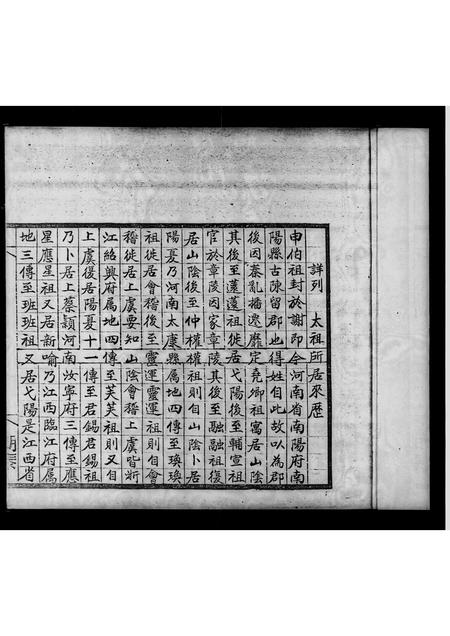 詳列　太祖所居來歷
申伯祖封於謝即今河南省南陽府南
陽縣古陳留郡也得姓自此故以為郡
後因秦亂播遷靡定堯卿祖寓居山陰
其後至蓮蓮祖徙居弋陽後至輔宣祖
官於章陵因家章陵其後至融融祖復
居山陰後至仲權權祖則自山陰卜居
陽夏乃河南太康縣属地四傳至瑍瑍
祖徙居會稽後至靈運靈運祖則自會
稽徙居上虞要知山陰會稽上虞皆浙
江紹興府属地四傳至芙芙祖則又自
上虞復居陽夏十一傳至君錫君錫祖
乃卜居上蔡潁河南汝寧府三傳至應
星應星祖又居新喻乃江西臨江府属
地三傳至班班祖又居弋陽是江西省